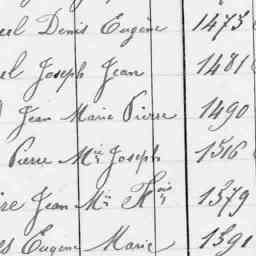 uel Denis Eugène 1475
el Joseph Jean 1481
Jean Marie Pierre 1490
Pierre Mie Joseph 1516
ire Jean Mie Fois 1579
es Eugène Marie 1591